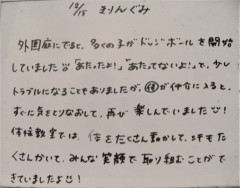 12/15 きりんぐみ
外園庭にでると、多くの子がドッジボールを開始
していました☺「あたったよ!」「あたってないよ!」で、少し
トラブルになることもありましたが、保が仲介に入ると、
すぐに気をとりなおして、再び楽しんでいました☺!
体操教室では、体をたくさん動かして、汗も た
くさんかいて、みんな笑顔で取り組むことが
できていましたよ☺!